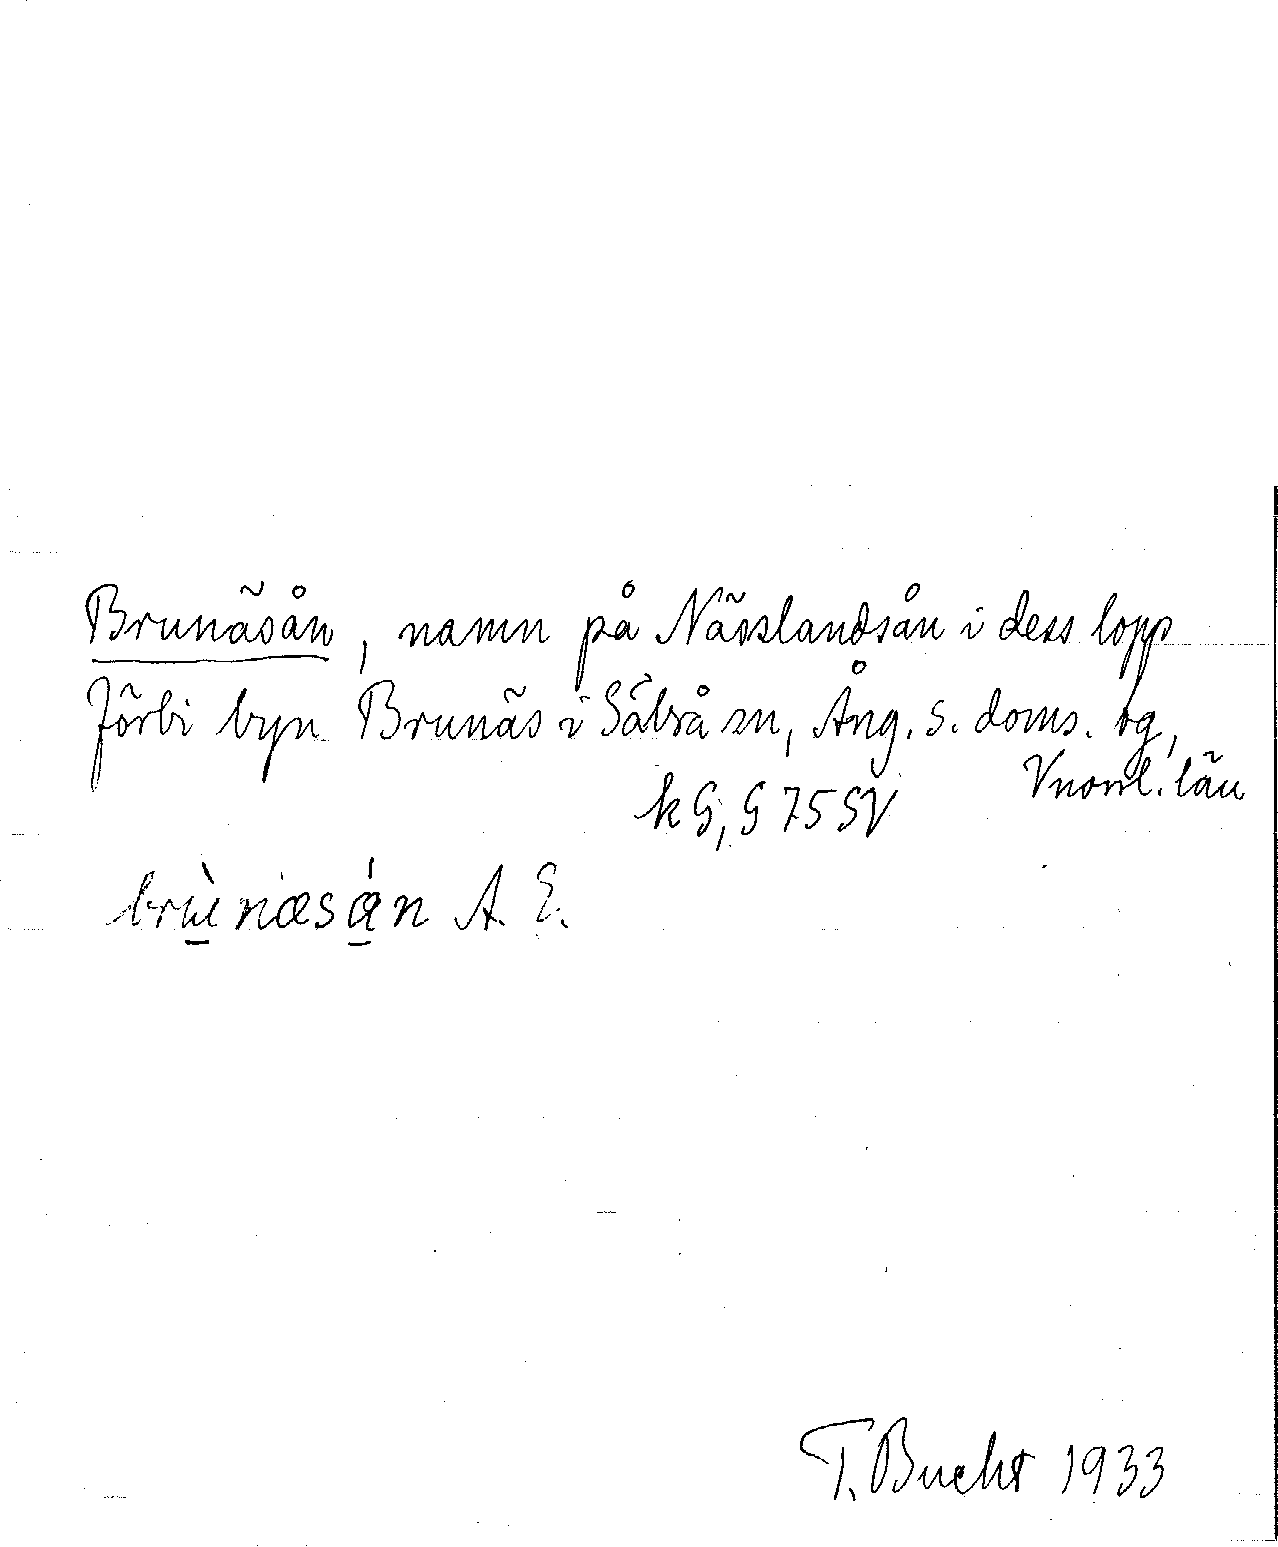 Brunäsån, namn på Nässlandsån i dess lopp
förbi byn Brunäs i Säbrå sn, Ång. s. doms. tg,
Vnorrl. län
kG, G 75 SV
brùnæsán A. E.
T. Bucht 1933